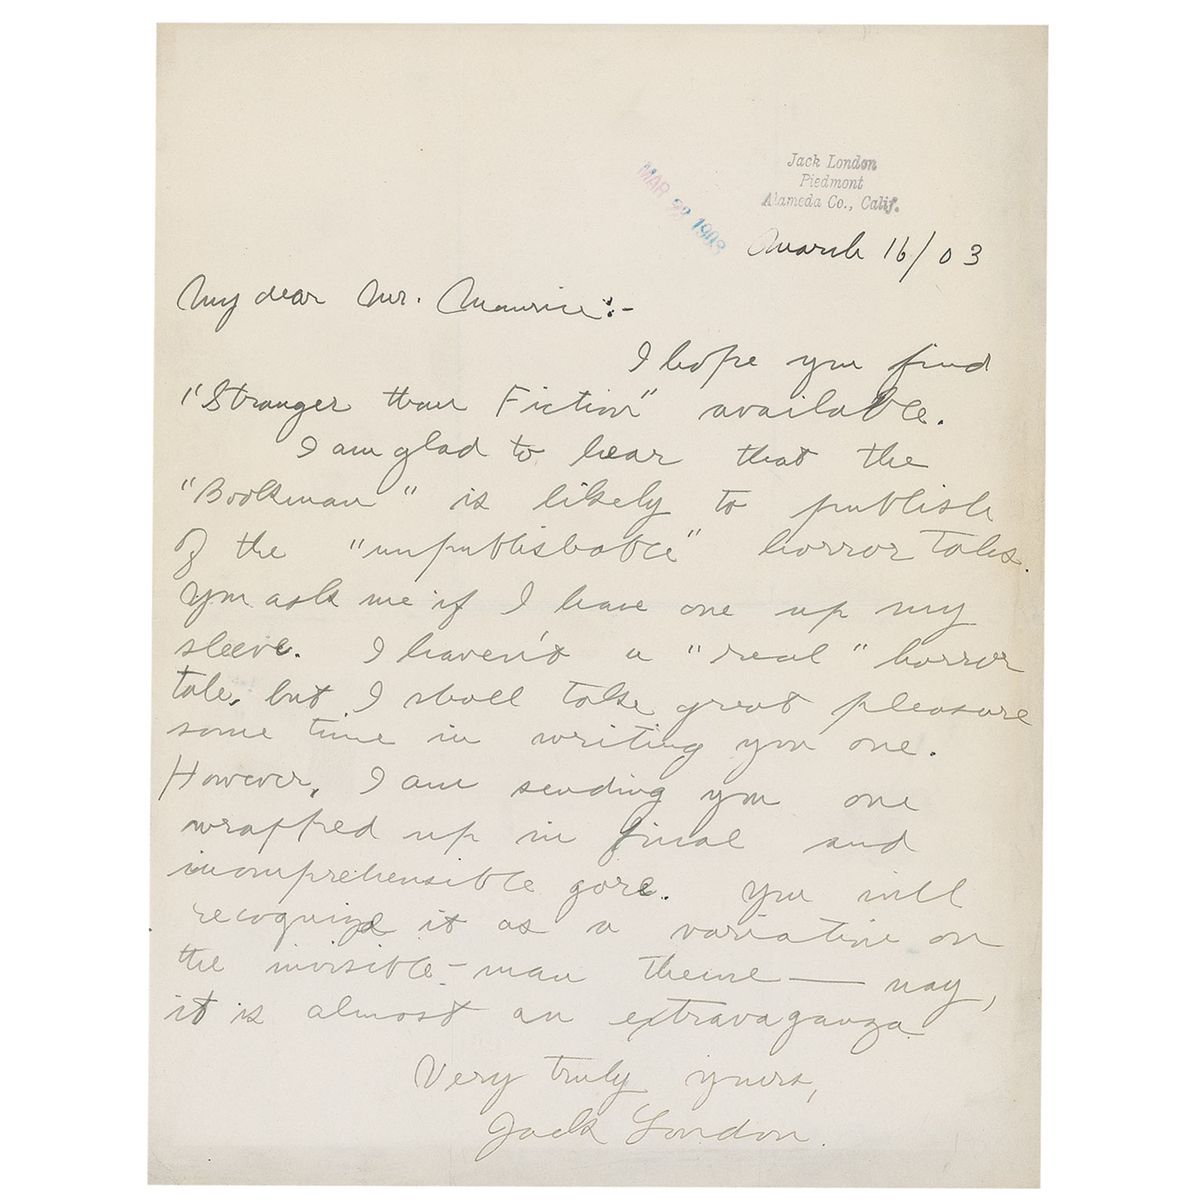 Jack London
Piedmont
Alameda Co., Calif.
MAR 23 1903
March 16/03
My dear Mr. Maurice:-
I hope you find
"Stranger than Fiction" available.
I am glad to hear that the
"Bookman" is likely to publish
of the "unpublishable" horror tales.
You ask me if I have one up my
sleeve. I haven't a "real" horror
tale, but I shall take great pleasure
some time in writing you one.
However, I am sending you one
wrapped up in final and
incomprehensible gore. You will
recognize it as a variation on
the invisible-man theme — nay,
it is almost an extravaganza
Very truly yours,
Jack London.